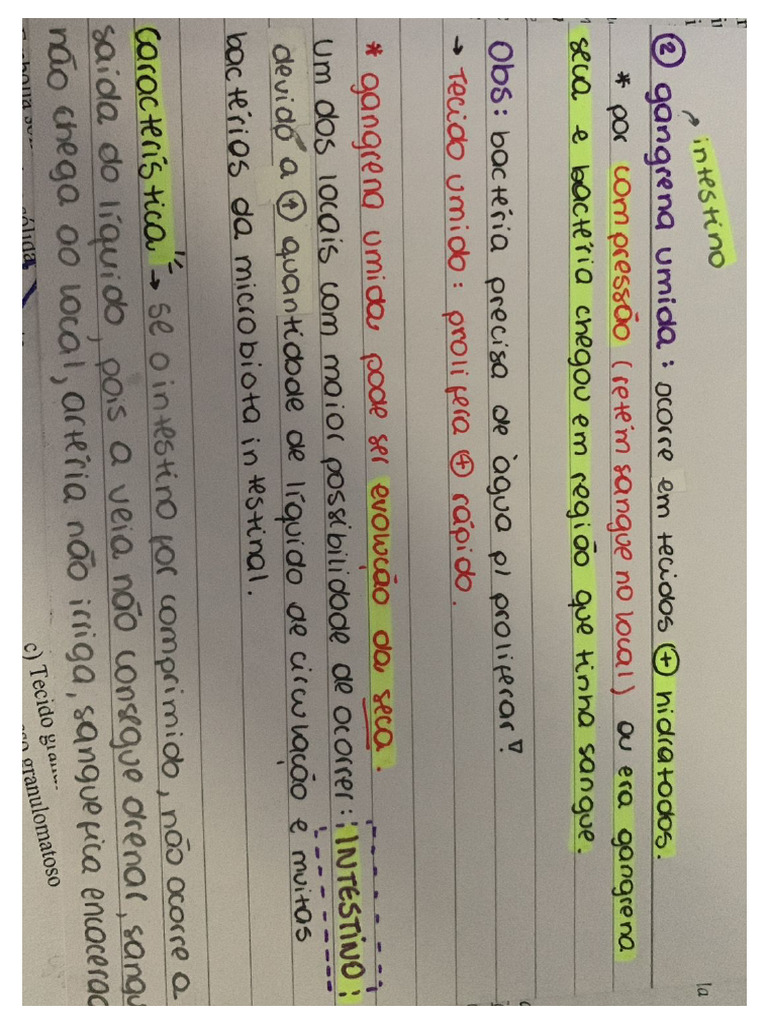 intestino
② gangrena umida: ocorre em tecidos ⊕ hidratados.
* por compressão (retém sangue no local) ou era gangrena
seca e bactéria chegou em região que tinha sangue.
Obs: bactéria precisa de água p/ proliferar!
→ Tecido umido: prolifera ⊕ rápido.
* gangrena umida, pode ser evolução da, seca.
um dos locais com maior possibilidade de ocorrer: INTESTINO:
devido a ⊕ quantidade de líquido de circulação e muitas
bactérias da microbiota intestinal.
Característica → se o intestino for comprimido, não ocorre a
saída do líquido, pois a veia não consegue drenar, sangu
não chega ao local, artéria não irriga, sangue fica encocerad
c) Tecido
granulomatoso
la